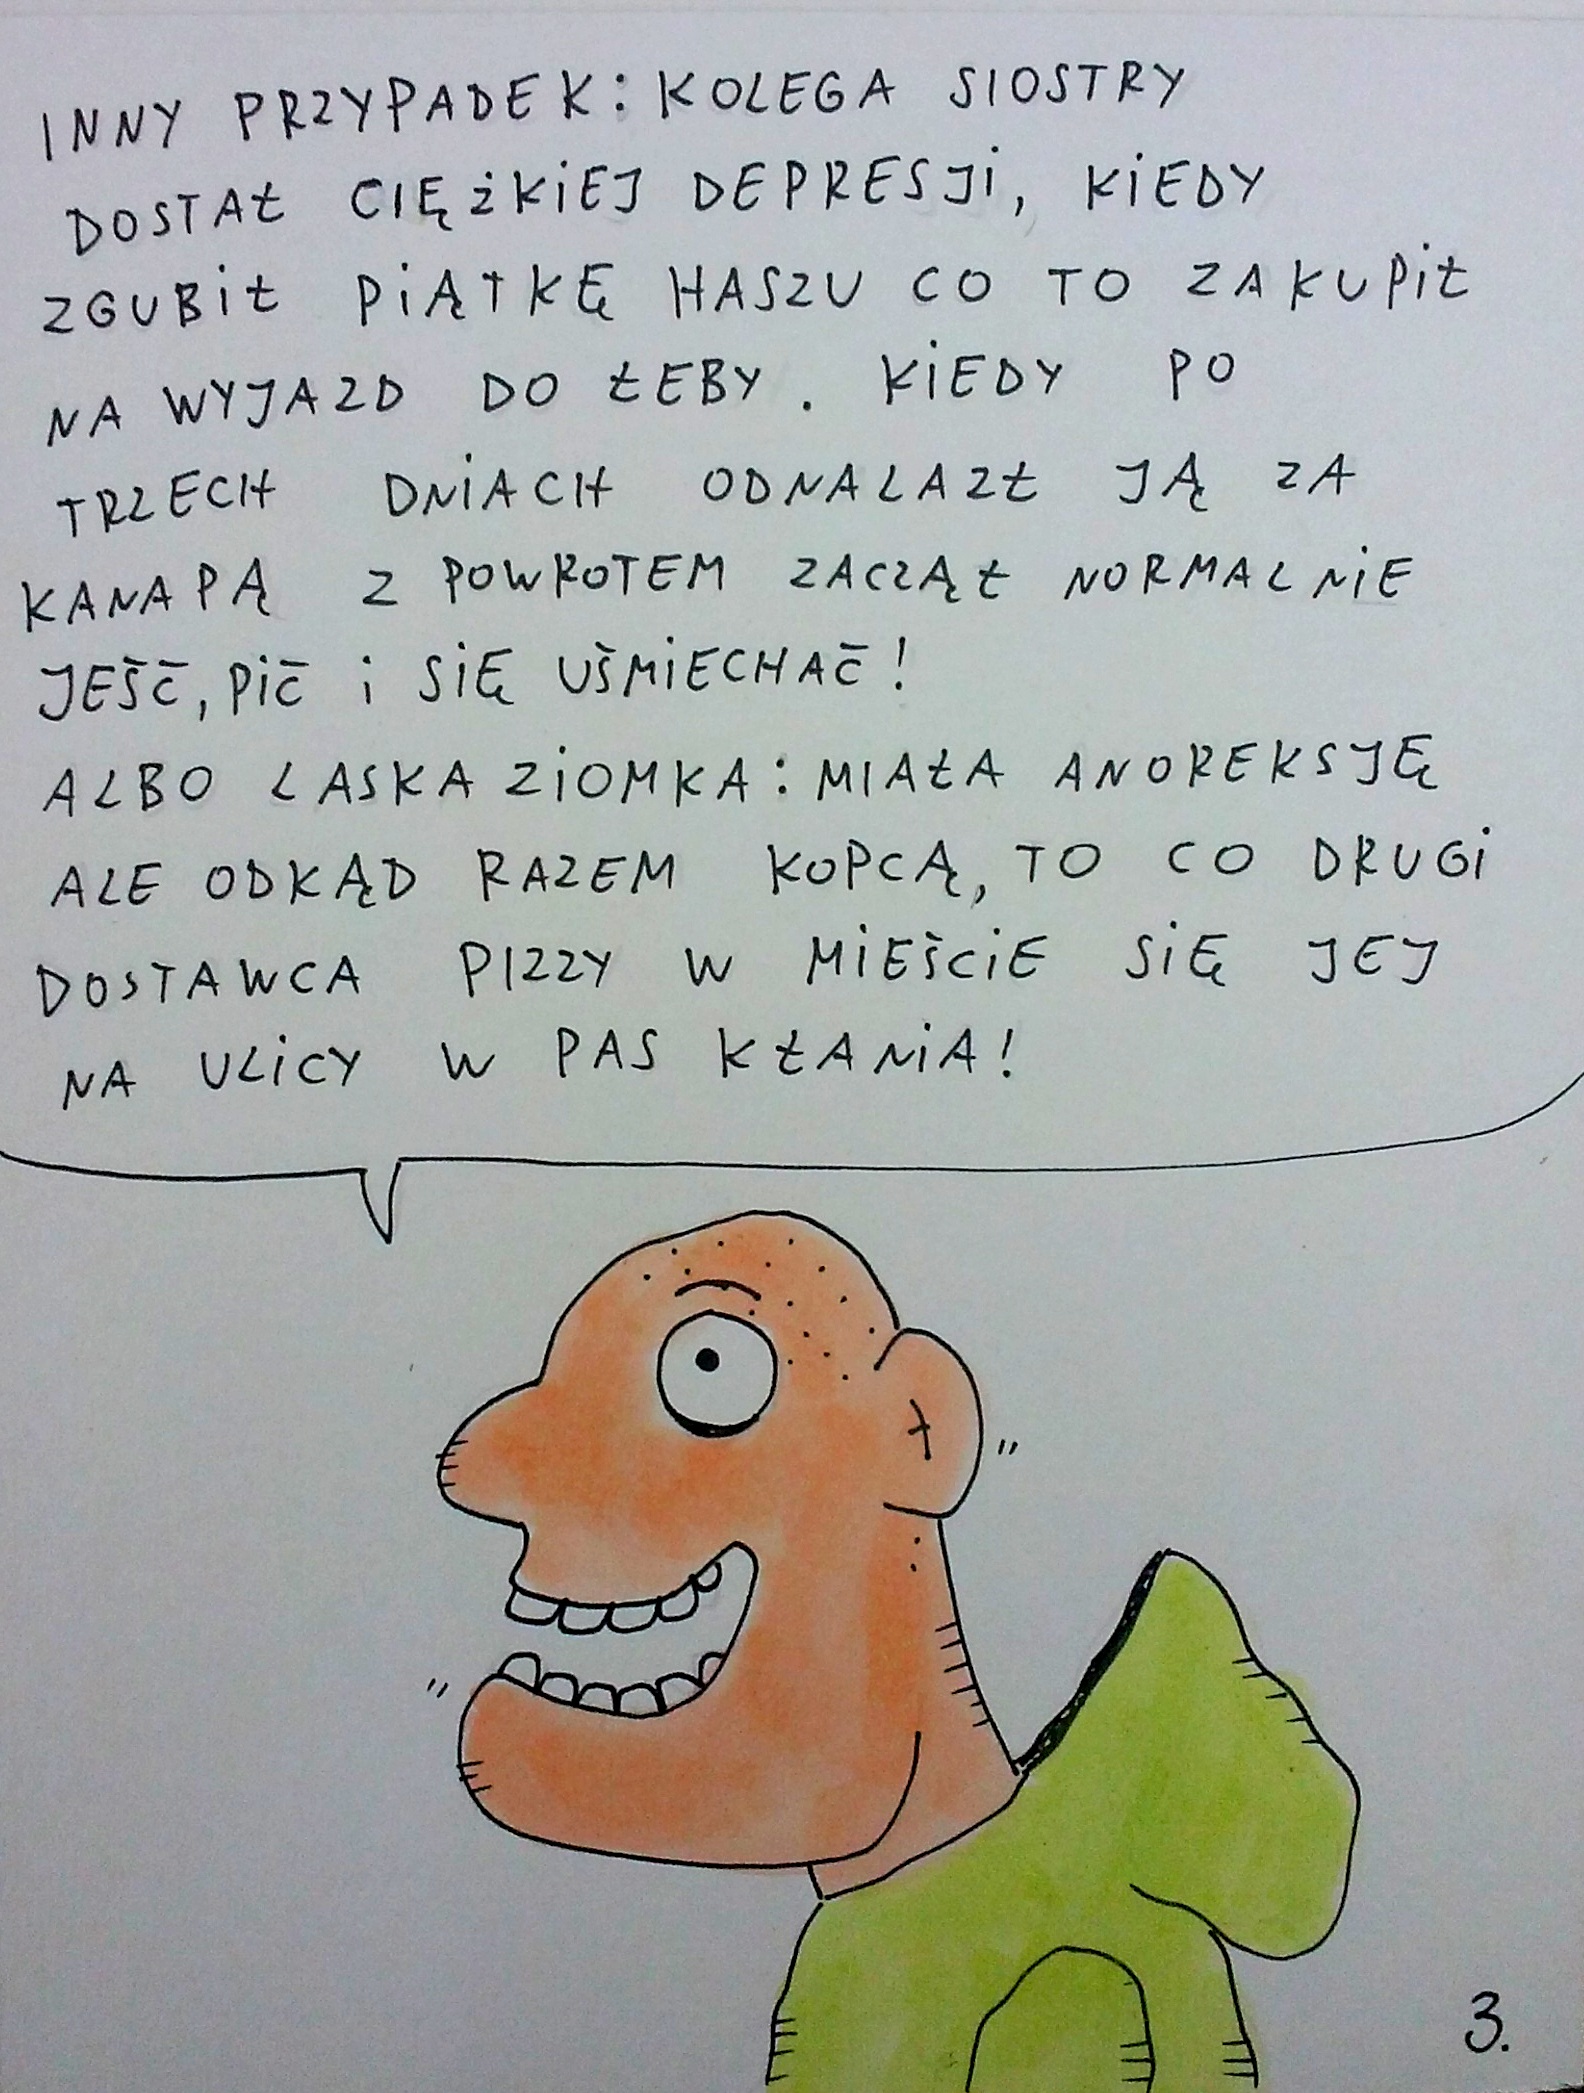 INNY PRZYPADEK: KOLEGA SIOSTRY
DOSTAŁ CIĘŻKIEJ DEPRESJI, KIEDY
ZGUBIŁ PIĄTKĘ HASZU CO TO ZAKUPIŁ
NA WYJAZD DO ŁEBY. KIEDY PO
TRZECH DNIACH ODNALAZŁ JĄ ZA
KANAPĄ Z POWROTEM ZACZĄŁ NORMALNIE
JEŚĆ, PIĆ I SIĘ UŚMIECHAĆ!
ALBO LASKA ZIOMKA: MIAŁA ANOREKSJĘ
ALE ODKĄD RAZEM KOPCĄ, TO CO DRUGI
DOSTAWCA PIZZY W MIEŚCIE SIĘ JEJ
NA ULICY W PAS KŁANIA!
3.